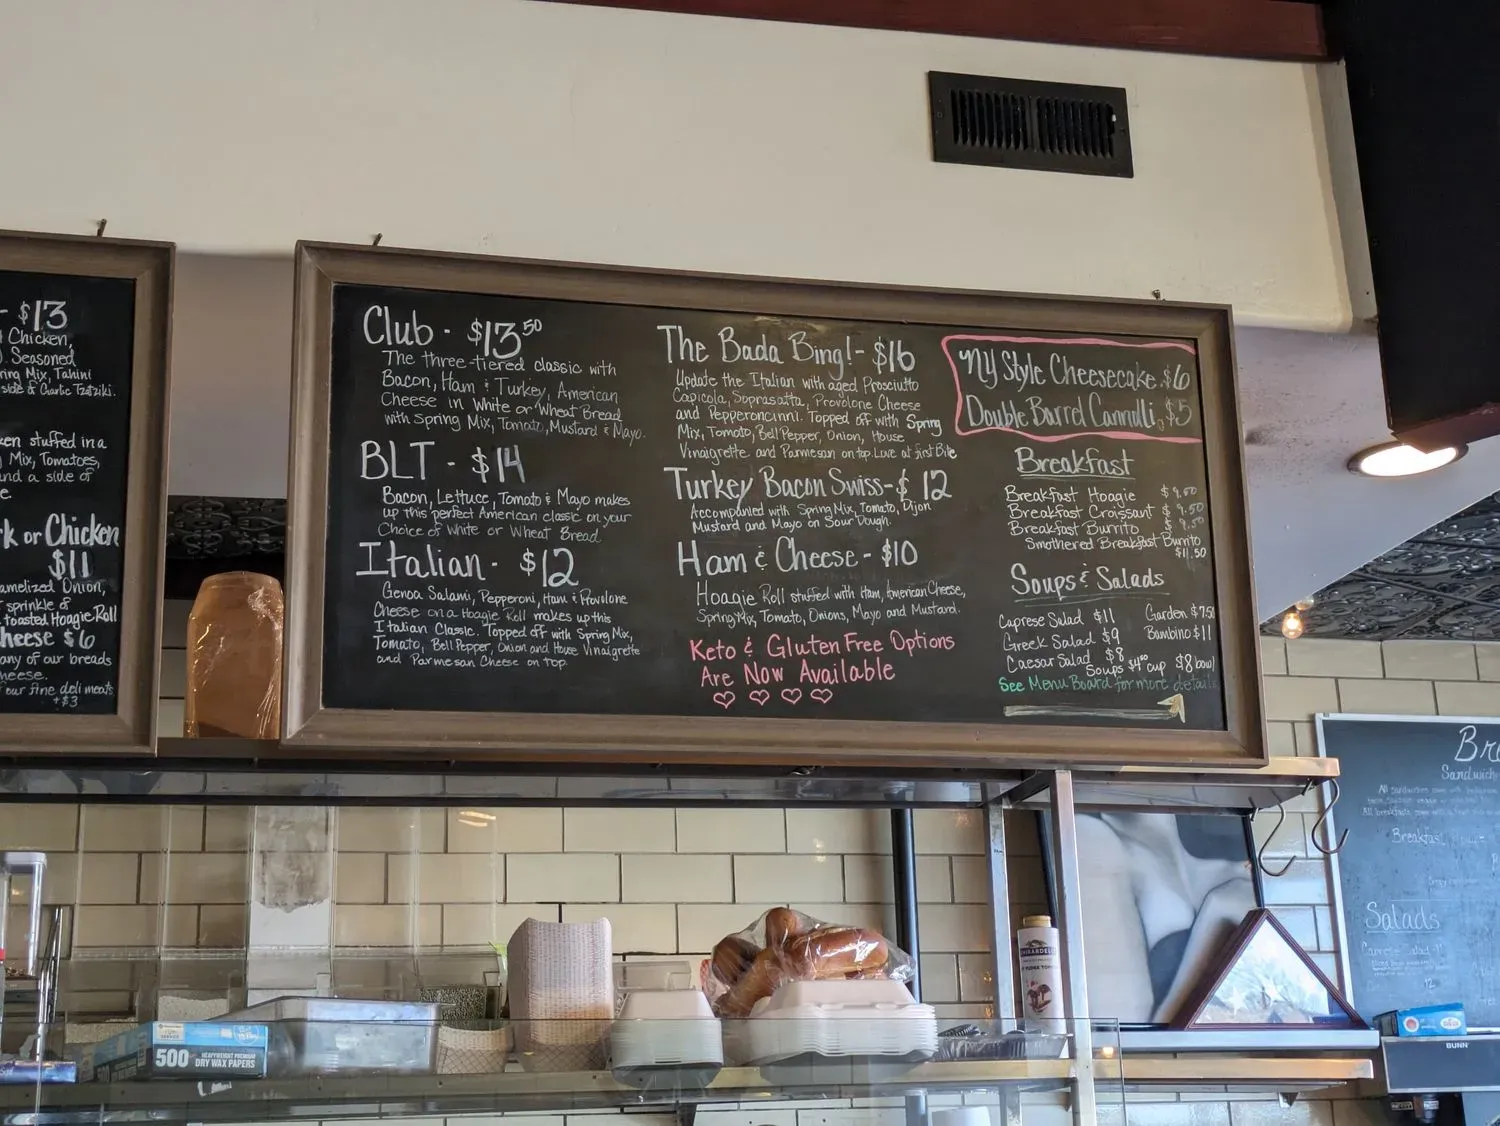 - $13
d Chicken,
Seasoned
ring Mix, Tahini
side of Garlic Tzatziki.
ken stuffed in a
Mix, Tomatoes,
and a side of
k or Chicken
$11
amelized Onion,
sprinkle of
toasted Hoagie Roll
heese $6
any of our breads
heese.
our fine deli meats
+$3
Club - $13.50
The three-tiered classic with
Bacon, Ham & Turkey, American
Cheese in White or Wheat Bread
with Spring Mix, Tomato, Mustard & Mayo.
BLT - $14
Bacon, Lettuce, Tomato & Mayo makes
up this perfect American classic on your
Choice of White or Wheat Bread
Italian - $12
Genoa Salami, Pepperoni, Ham & Provolone
Cheese on a Hoagie Roll makes up this
Italian Classic. Topped off with Spring Mix,
Tomato, Bell Pepper, Onion and House Vinaigrette
and Parmesan Cheese on top.
The Bada Bing! - $16
Update the Italian with aged Prosciutto
Capicola, Soprasatta, Provolone Cheese
and Pepperoncinni. Topped off with Spring
Mix, Tomato, Bell Pepper, Onion, House
Vinaigrette and Parmesan on top. Love at first Bite
Turkey Bacon Swiss - $12
Accompanied with Spring Mix, Tomato, Dijon
Mustard and Mayo on Sour Dough.
Ham & Cheese - $10
Hoagie Roll stuffed with Ham, American Cheese,
Spring Mix, Tomato, Onions, Mayo and Mustard.
Keto & Gluten Free Options
Are Now Available
NY Style Cheesecake $6
Double Barrel Cannulli $5
Breakfast
Breakfast Hoagie $9.50
Breakfast Croissant $9.50
Breakfast Burrito $9.50
Smothered Breakfast Burrito
$11.50
Soups & Salads
Caprese Salad $11 Garden $7.50
Greek Salad $9 Bambino $11
Caesar Salad $8
Soups $4.00 cup $8 bowl
See Menu Board for more details
Bre
Sandwich
Breakfast
Salads
Caprese Salad
12
500 HEAVYWEIGHT PREMIUM
DRY WAX PAPERS
GHIRARDELLI
BUNN